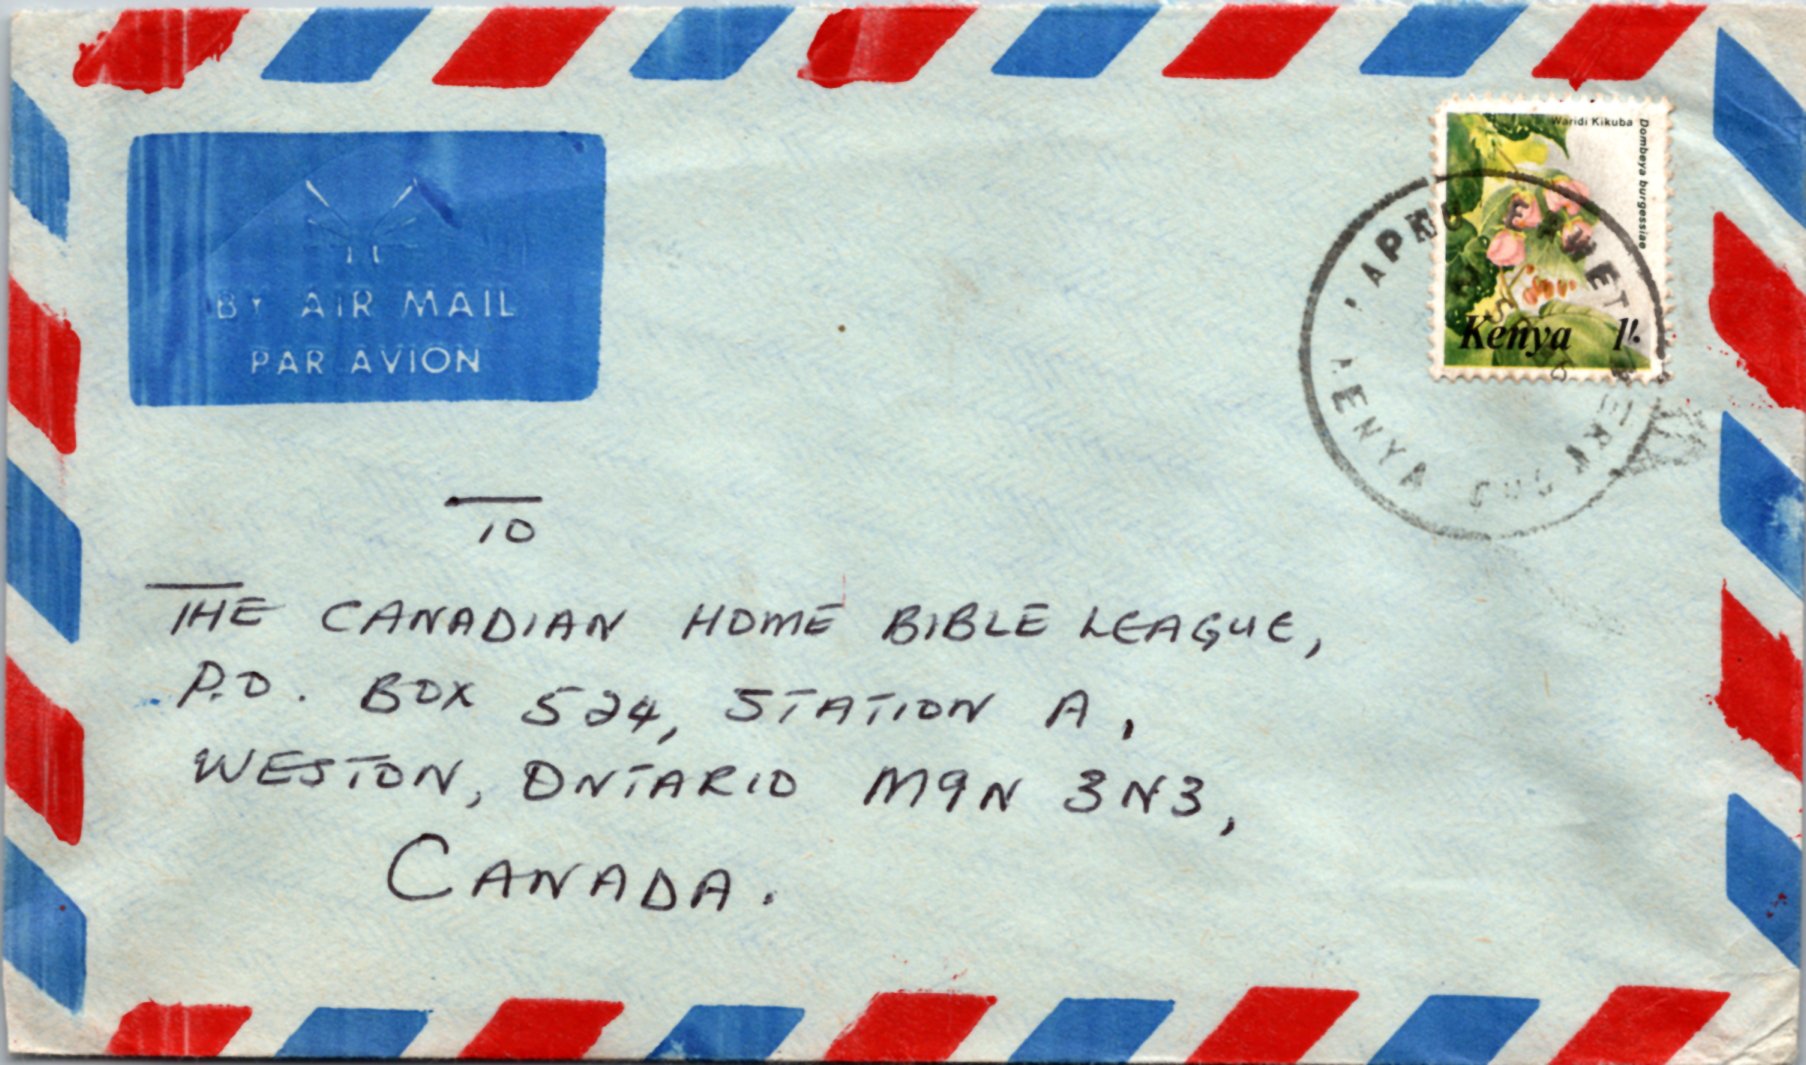 BY AIR MAIL
PAR AVION
Waridi Kikuba
Dombeya burgessiae
Kenya 1/-
KENYA
TO
THE CANADIAN HOME BIBLE LEAGUE,
P.O. BOX 524, STATION A,
WESTON, ONTARIO M9N 3N3,
CANADA.